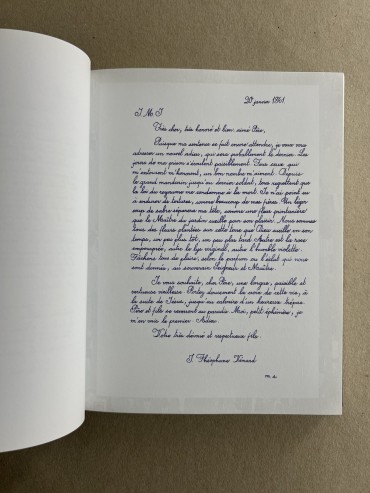 20 janvier 1861
J. M. J.
Très cher, très honoré et bien-aimé Père,
Puisque ma sentence se fait encore attendre, je veux vous
adresser un nouvel adieu, qui sera probablement le dernier. Les
jours de ma prison s'écoulent paisiblement. Tous ceux qui
m'entourent m'honorent, un bon nombre m'aiment. Depuis
le grand mandarin jusqu'au dernier soldat, tous regrettent que
la loi du royaume me condamne à la mort. Je n'ai point eu
à endurer de tortures, comme beaucoup de mes frères. Un léger
coup de sabre séparera ma tête, comme une fleur printanière
que le Maître du jardin cueille pour son plaisir. Nous sommes
tous des fleurs plantées sur cette terre que Dieu cueille en son
temps, un peu plus tôt, un peu plus tard. Autre est la rose
empourprée, autre le lys virginal, autre l'humble violette.
Tâchons tous de plaire, selon le parfum ou l'éclat qui nous
sont donnés, au souverain Seigneur et Maître.
Je vous souhaite, cher Père, une longue, paisible et
vertueuse vieillesse. Portez doucement la croix de cette vie, à
la suite de Jésus, jusqu'au calvaire d'un heureux trépas.
Père et fils se reverront au paradis. Moi, petit éphémère, je
m'en vais le premier. Adieu.
Votre très dévoué et respectueux fils.
J. Théophane Vénard
m. s.